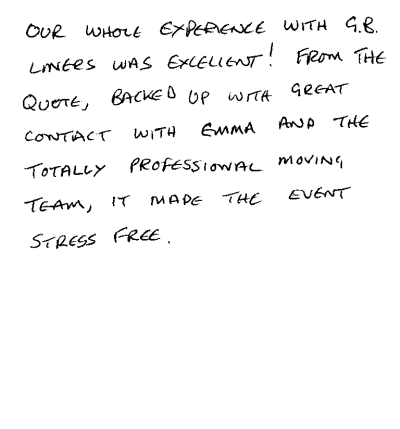 OUR WHOLE EXPERIENCE WITH G.B.
LINERS WAS EXCELLENT! FROM THE
QUOTE, BACKED UP WITH GREAT
CONTACT WITH EMMA AND THE
TOTALLY PROFESSIONAL MOVING
TEAM, IT MADE THE EVENT
STRESS FREE.